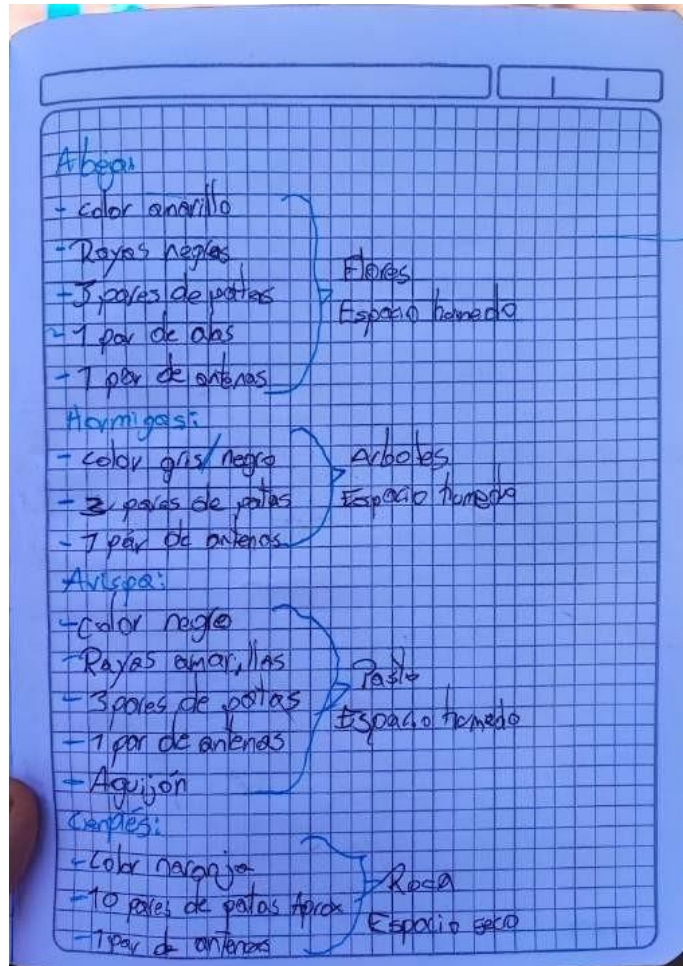 Abejas
- color amarillo
- Rayas negras
- 3 pares de patas
- 1 par de alas
- 1 par de antenas
Flores
Espacio humedo
Hormigas:
- color gris/negro
- 3 pares de patas
- 1 par de antenas
Arboles
Espacio humedo
Avispa:
- Color negro
- Rayas amarillas
- 3 pares de patas
- 1 par de antenas
- Aguijón
Pasto
Espacio humedo
Cienpiés:
- Color naranja
- 10 pares de patas Aprox
- 1 par de antenas
Roca
Espacio seco